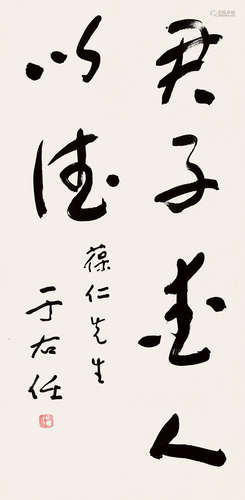 君子爱人
以德
葆仁先生
于右任